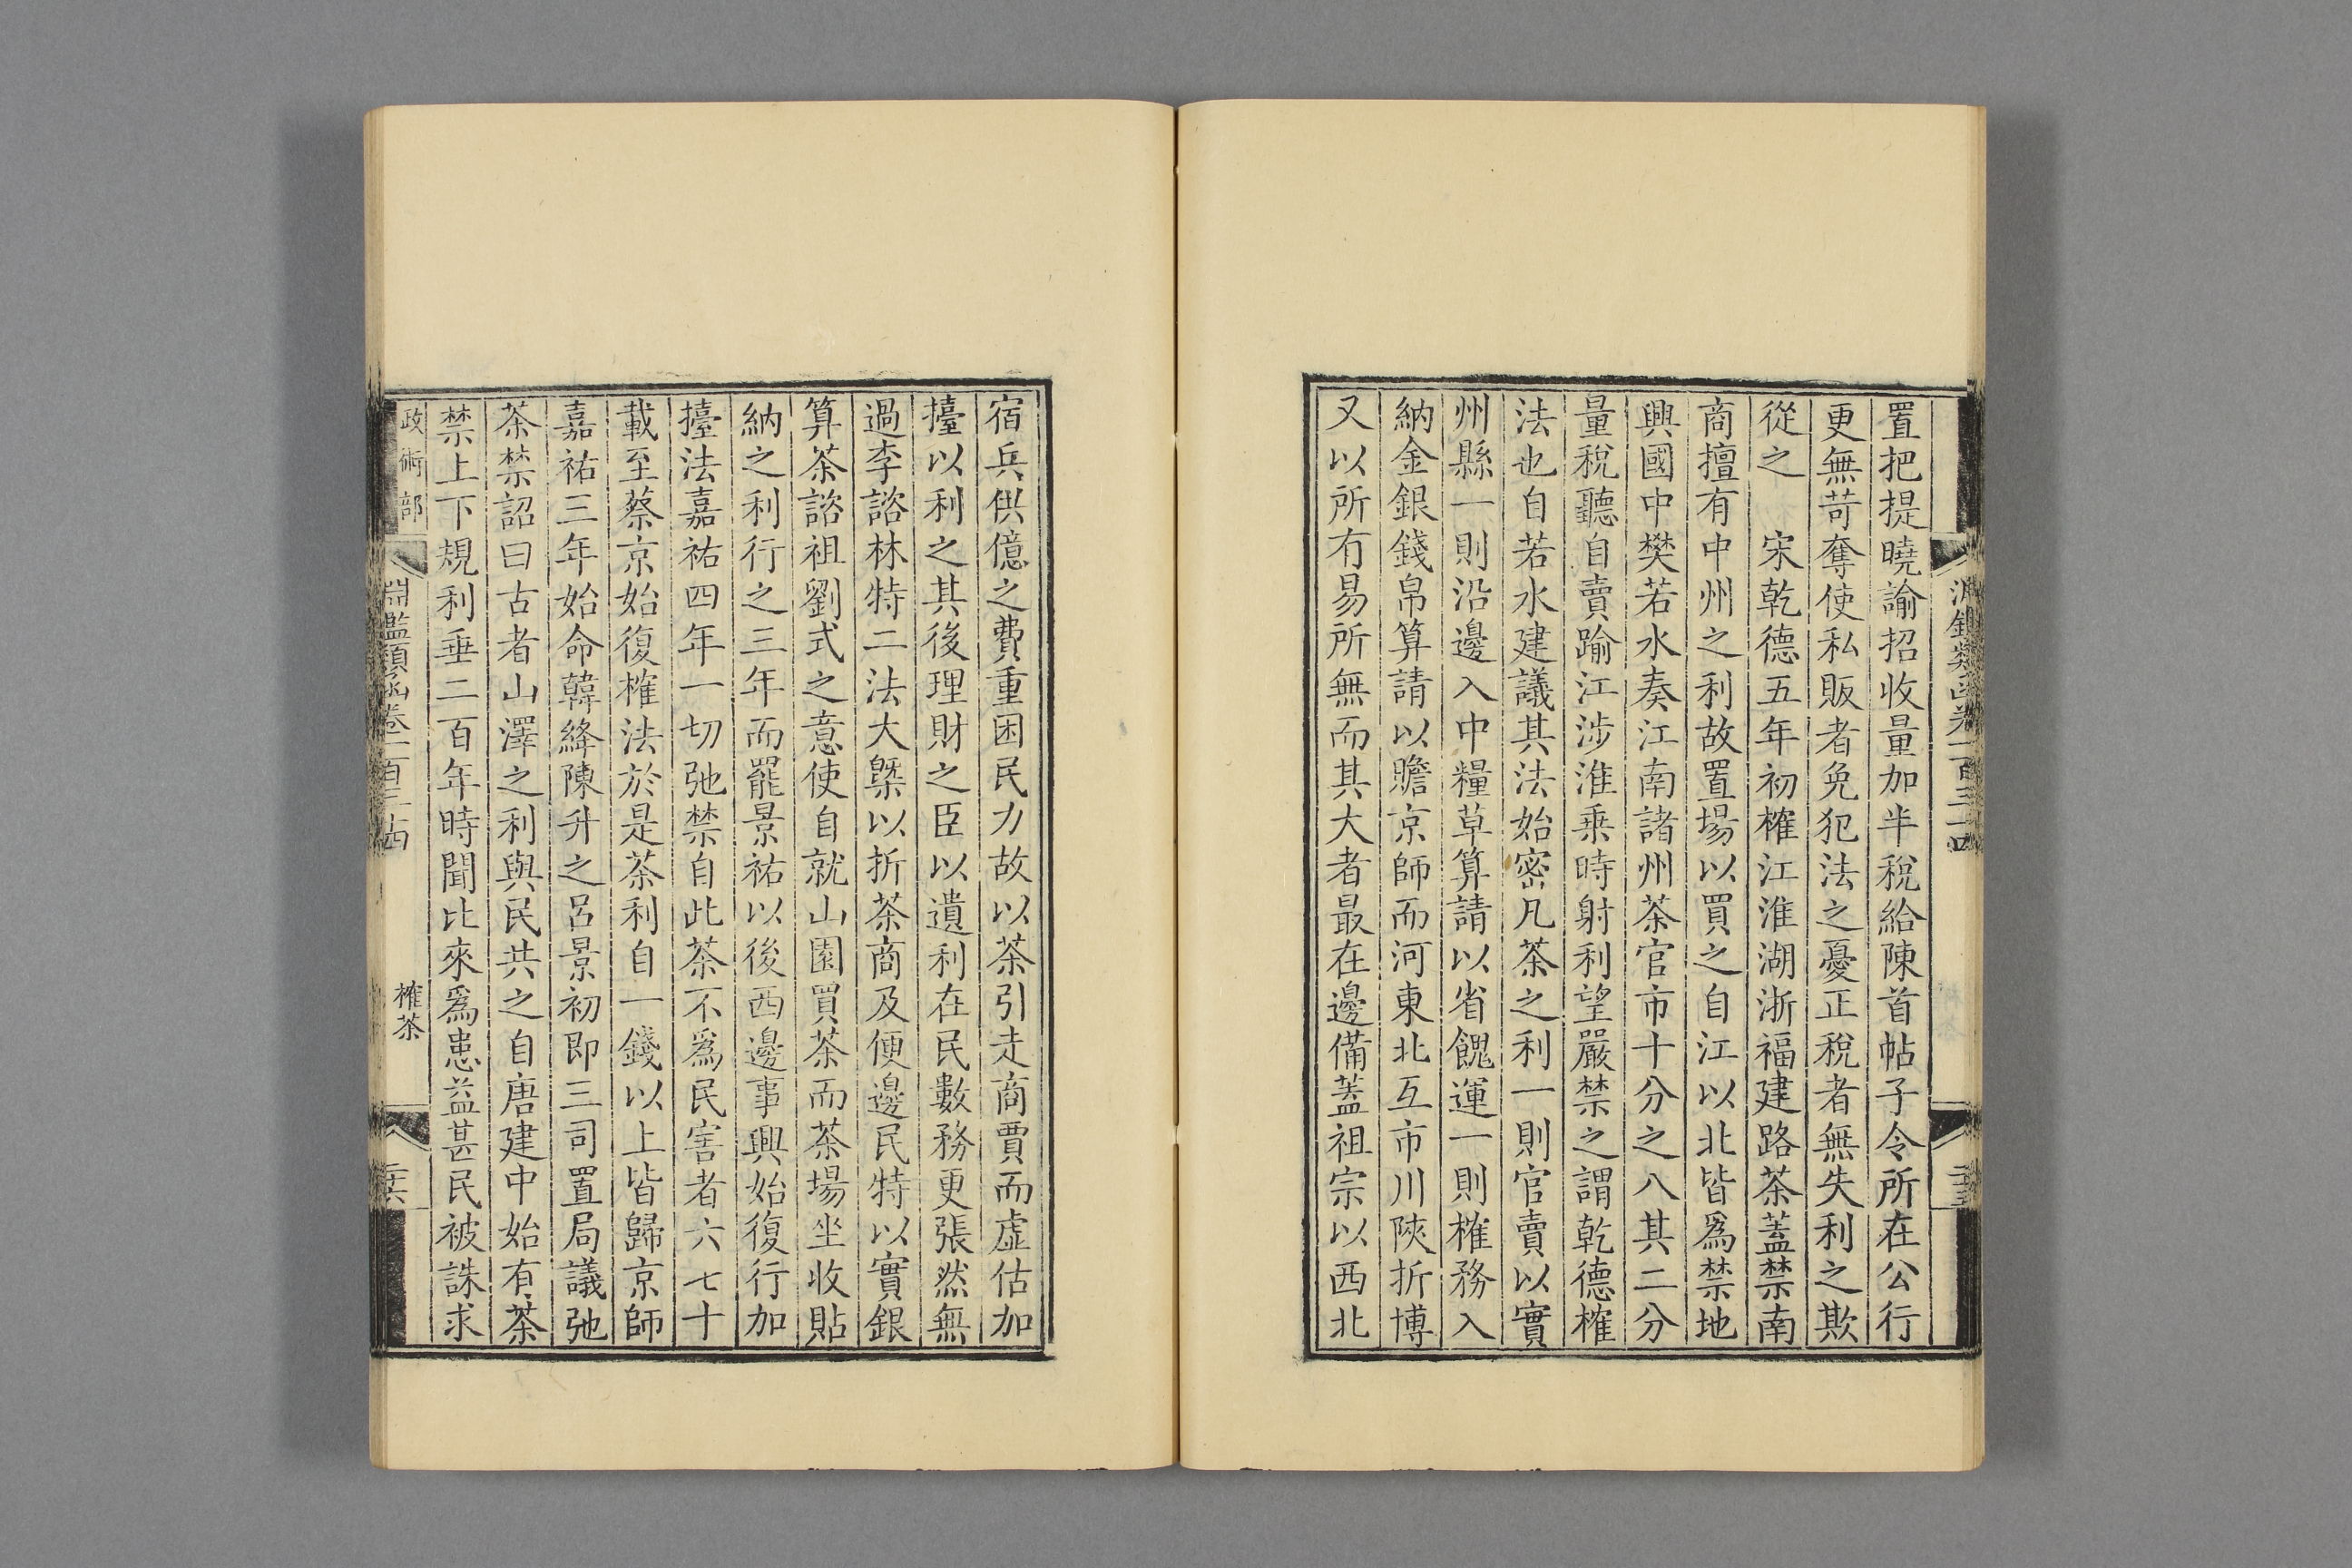 置把提曉諭招收量加半稅給陳首帖子令所在公行
更無苛奪使私販者免犯法之憂正稅者無失利之欺
從之　宋乾德五年初榷江淮湖浙福建路茶蓋禁南
商擅有中州之利故置場以買之自江以北皆爲禁地
興國中樊若水奏江南諸州茶官市十分之八其二分
量稅聽自賣踰江涉淮乗時射利望嚴禁之謂乾德榷
法也自若水建議其法始密凡茶之利一則官賣以實
州縣一則沿邊入中糧草算請以省餽運一則榷務入
納金銀錢帛算請以贍京師而河東北互市川陝折博
又以所有易所無而其大者最在邊備蓋祖宗以西北
宿兵供億之費重困民力故以茶引走商賈而虛估加
擡以利之其後理財之臣以遺利在民數務更張然無
過李諮林特二法大槩以折茶商及便邊民特以實銀
算茶諮祖劉式之意使自就山園買茶而茶場坐收貼
納之利行之三年而罷景祐以後西邊事興始復行加
擡法嘉祐四年一切弛禁自此茶不爲民害者六七十
載至蔡京始復榷法於是茶利自一錢以上皆歸京師
嘉祐三年始命韓絳陳升之呂景初即三司置局議弛
茶禁詔曰古者山澤之利與民共之自唐建中始有茶
禁上下規利垂二百年時聞比來爲患益甚民被誅求
政術部
淵鑑類函卷一百三十四
榷茶